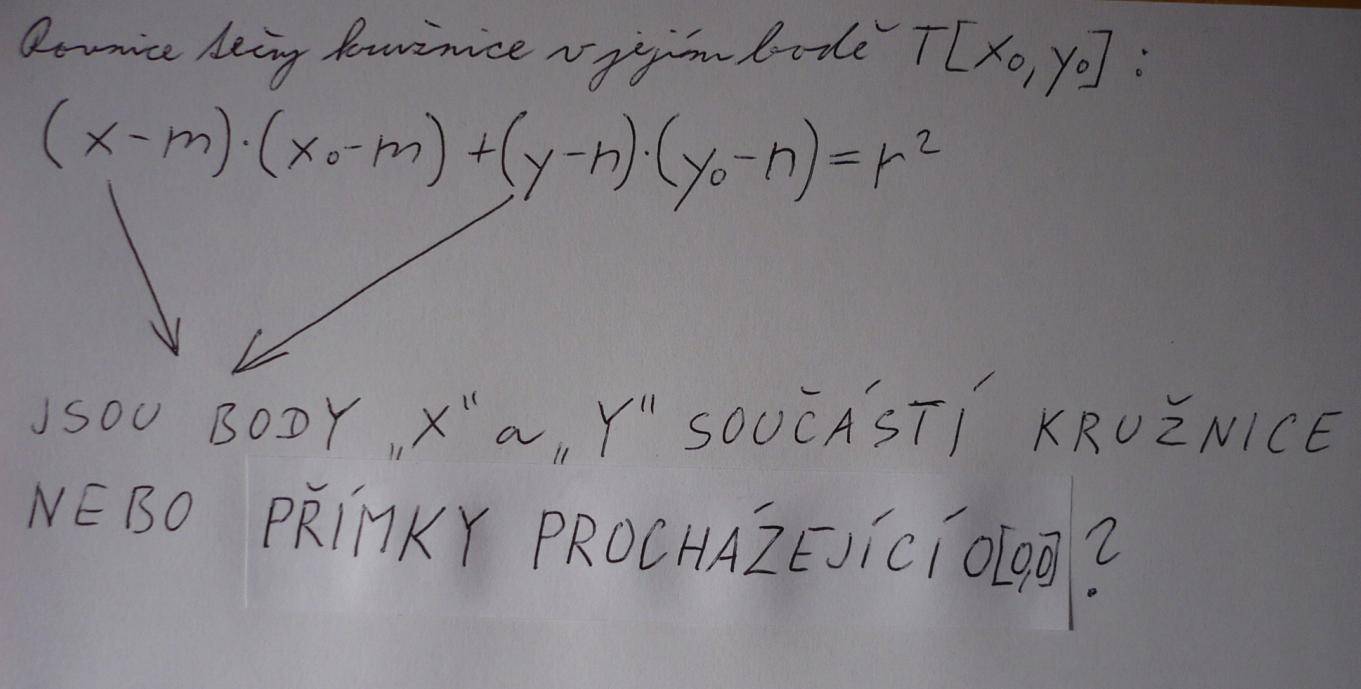 Rovnice tečny kružnice v jejím bodě T[x₀, y₀] :
(x-m)·(x₀-m) + (y-n)·(y₀-n) = r²
JSOU BODY „X“ a „Y“ SOUČÁSTÍ KRUŽNICE
NEBO PŘÍMKY PROCHÁZEJÍCÍ O[0,0] ?